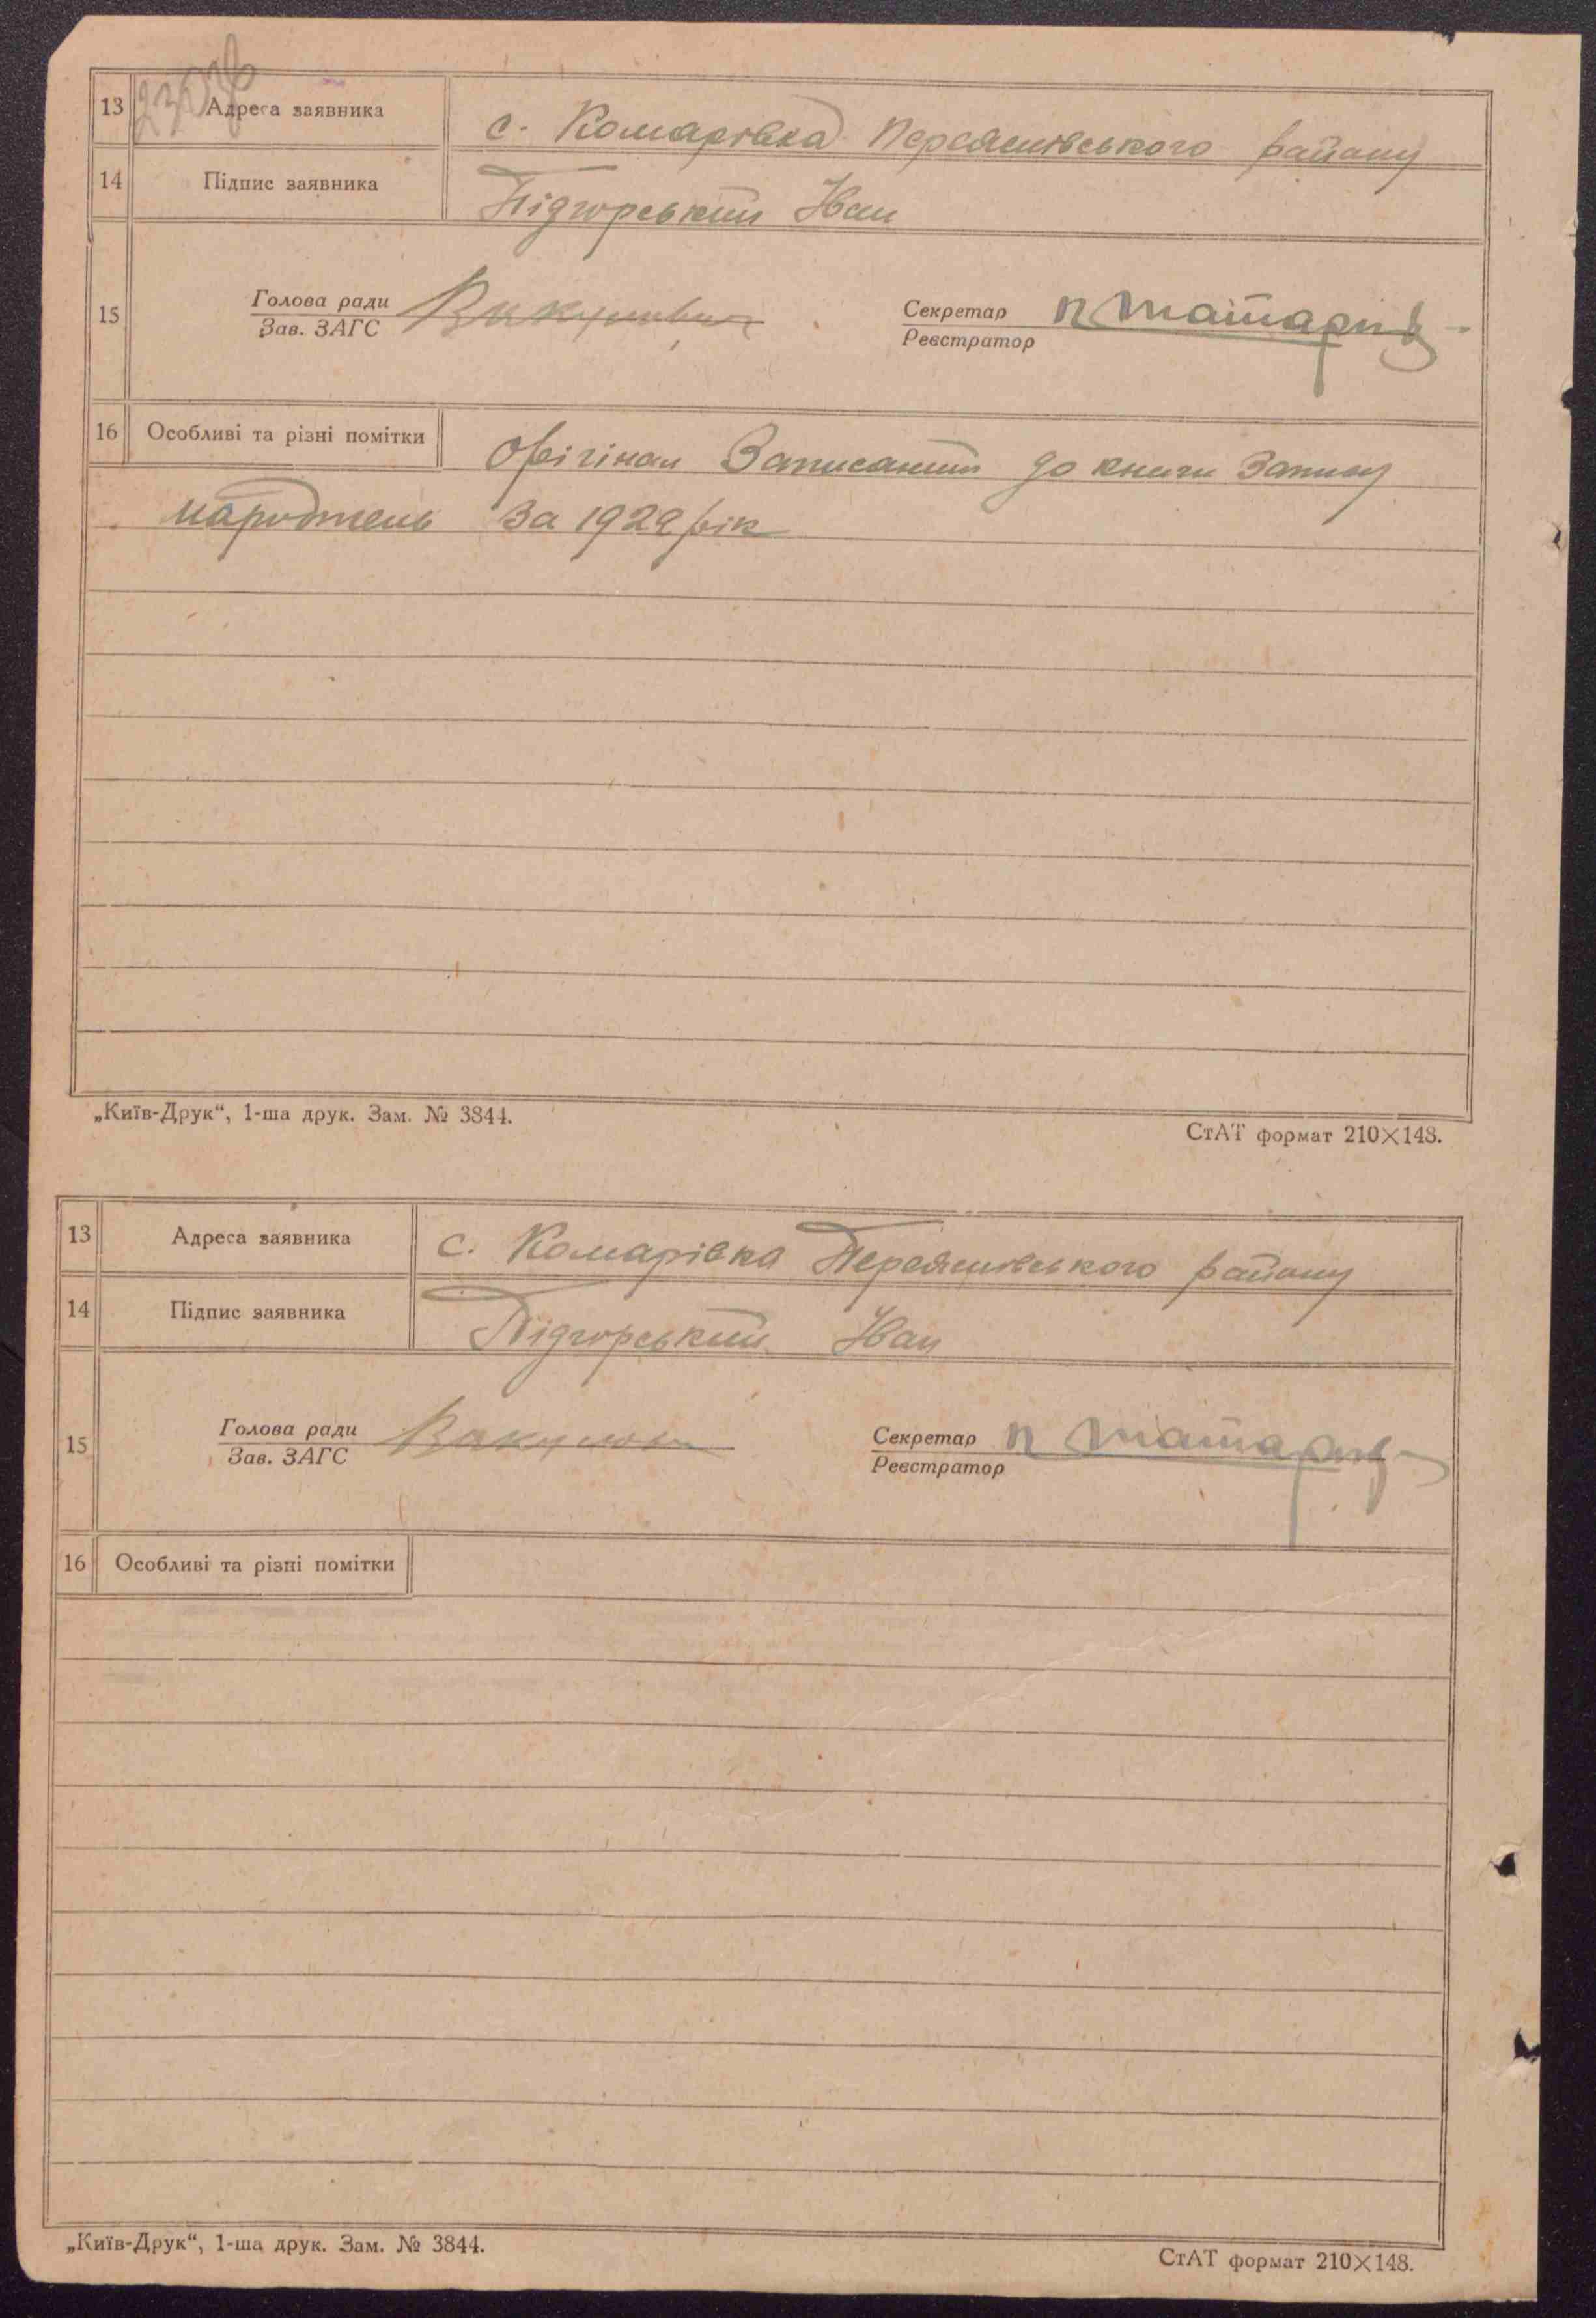 13 Адреса заявника с. Комарівка Переяслівського району
14 Підпис заявника Підгорський Іван
15 Голова ради Секретар п Татарин
Зав. ЗАГС Реєстратор
16 Особливі та різні помітки Орігінал Записаний до книги Запису
народжень за 1929 рік
„Київ-Друк“, 1-ша друк. Зам. № 3844.
СтАТ формат 210×148.
13 Адреса заявника с. Комарівка Переяслівського району
14 Підпис заявника Підгорський Іван
15 Голова ради Секретар п Татарин
Зав. ЗАГС Реєстратор
16 Особливі та різні помітки
„Київ-Друк“, 1-ша друк. Зам. № 3844.
СтАТ формат 210×148.